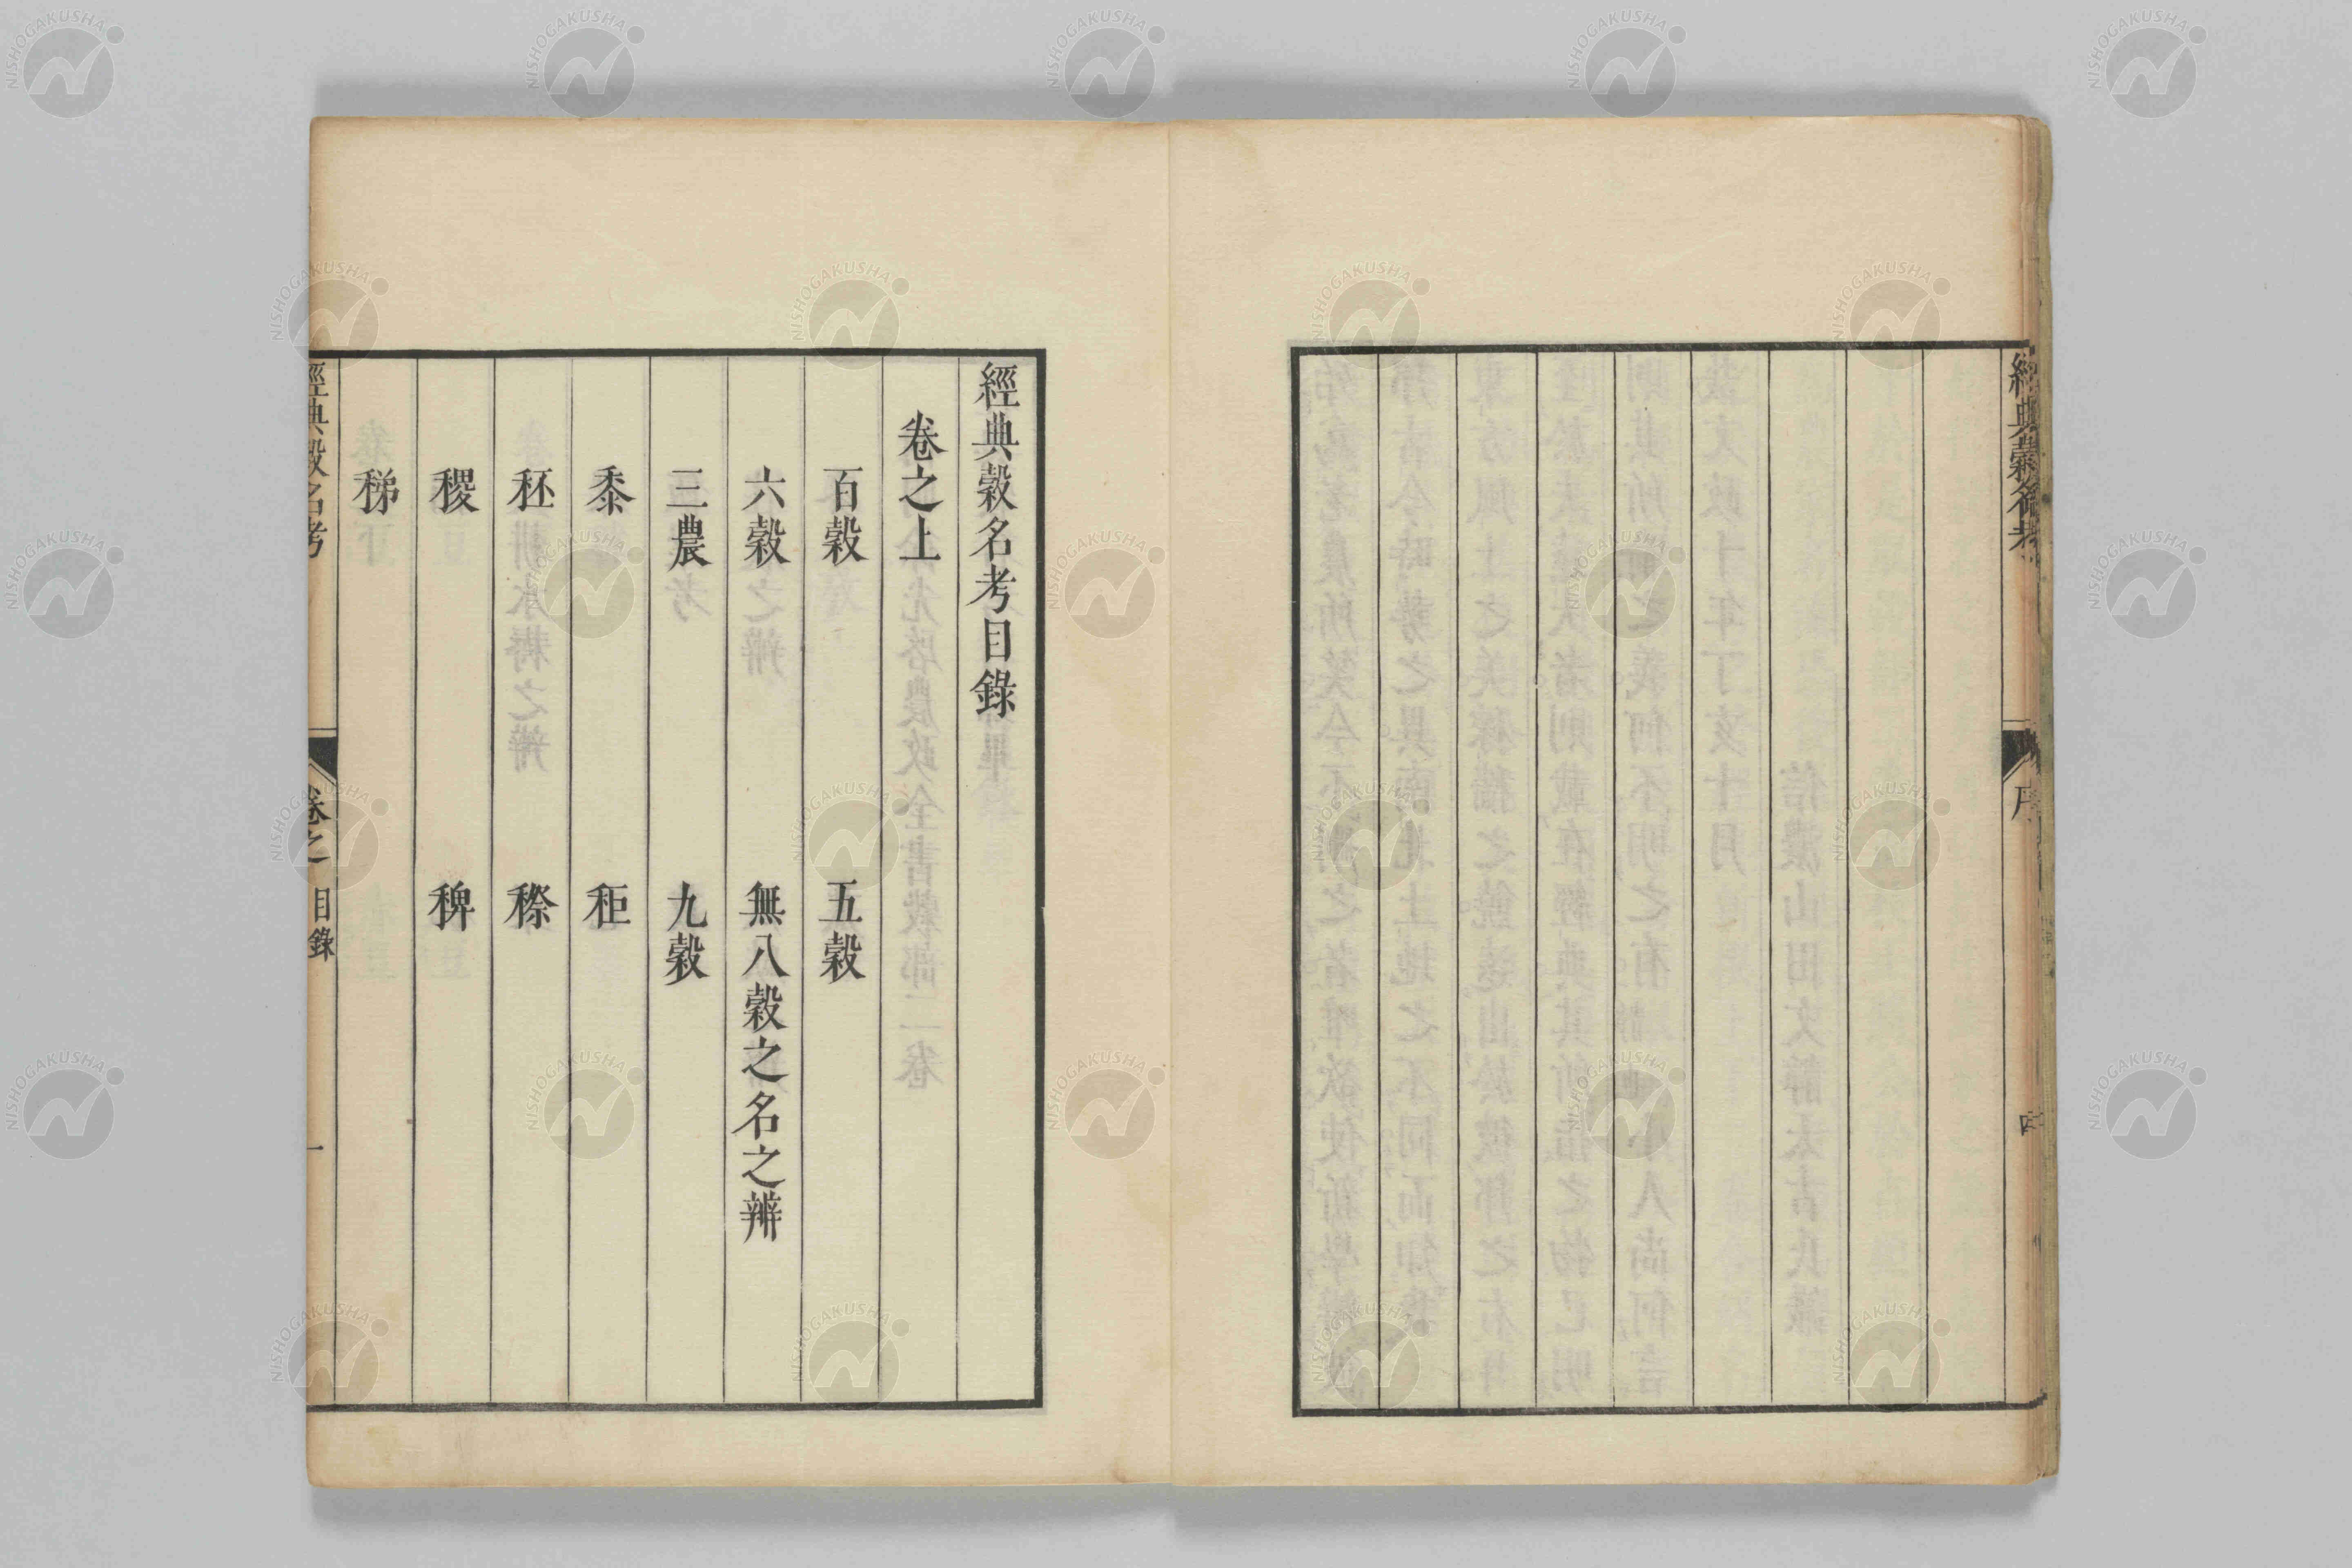 經典穀名考
序
四
經典穀名考目錄
卷之上
百穀 五穀
六穀 無八穀之名之辨
三農 九穀
黍 秬
秠 穄
稷 稗
稊
經典穀名考 卷之 目錄 一
NISHOGAKUSHA